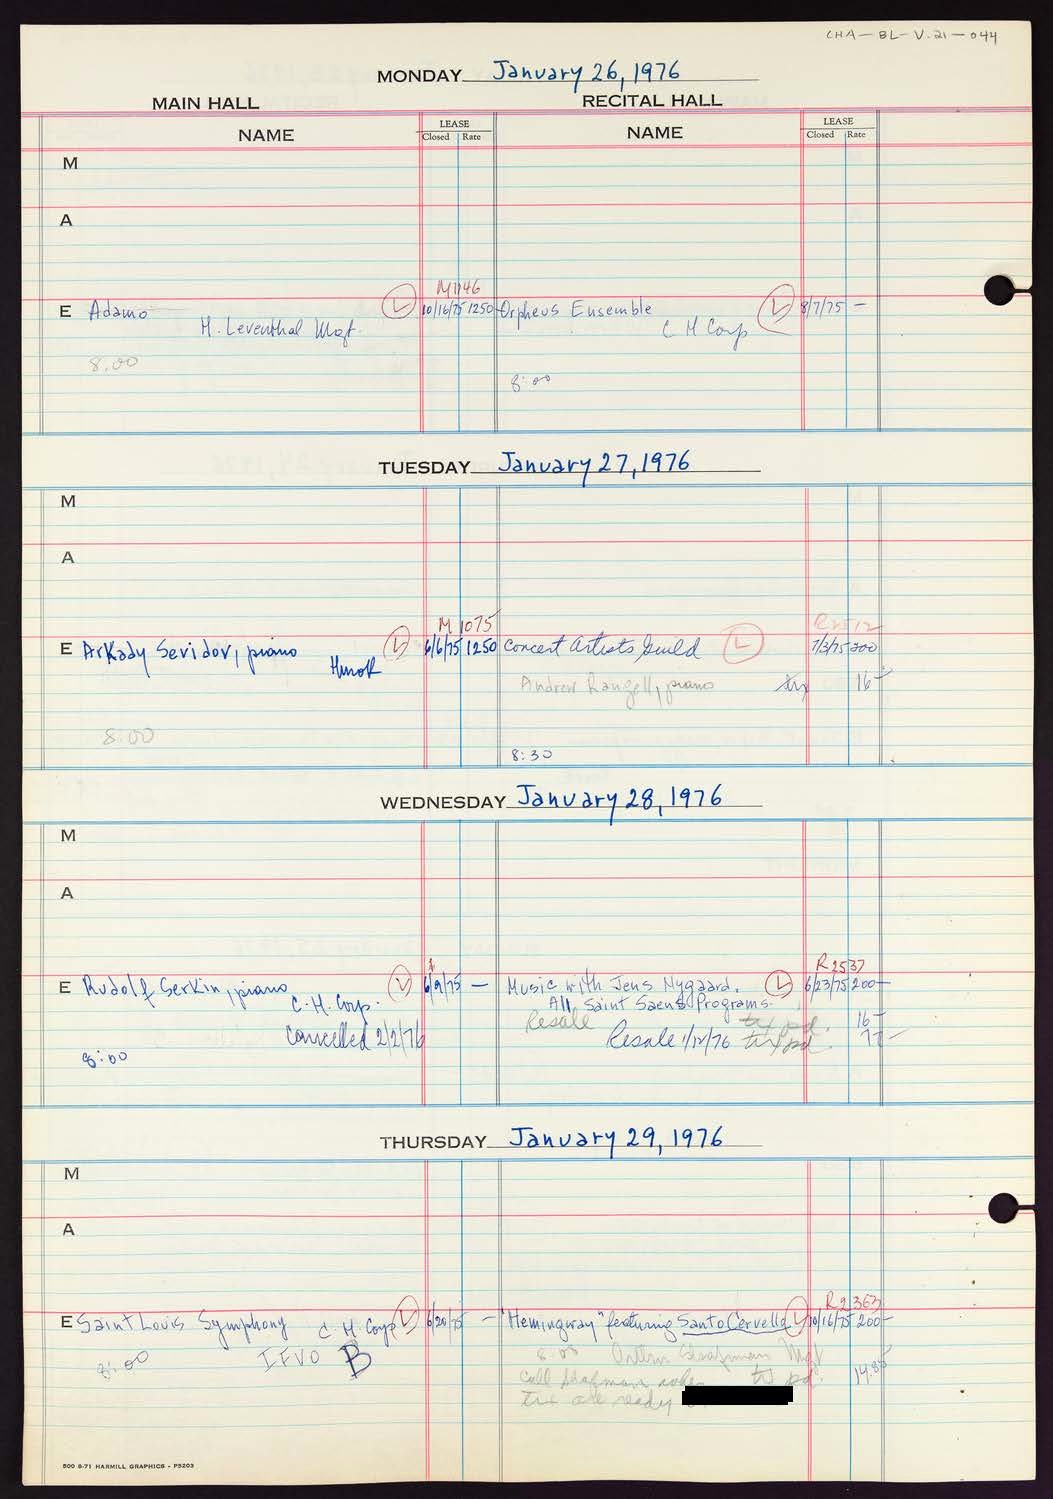 CHA-BL-V.21-044
MONDAY January 26, 1976
MAIN HALL
RECITAL HALL
NAME LEASE Closed Rate NAME LEASE Closed Rate
M
A
M1146
E Adamo L 10/16/75 1250 Orpheus Ensemble L 8/7/75 —
H. Leventhal Mgt. C H Corp
8:00
8:00
TUESDAY January 27, 1976
M
A
M 1075
E Arkady Sevidov, piano L 6/6/75 1250 Concert Artists Guild L 7/3/75 200
Hurok
Andrew Rangell, piano tix 16-
8:00
8:30
WEDNESDAY January 28, 1976
M
A
R2537
E Rudolf Serkin, piano 6/9/75 — Music with Jens Nygaard. L 6/23/75 200-
C. H. Corp. All Saint Saens Programs.
Resale tix pd. 16-
Cancelled 2/2/76 Resale 1/12/76 tix pd.
8:00
THURSDAY January 29, 1976
M
A
R2363
E Saint Louis Symphony C H Corp L 6/20/75 — "Hemingway" featuring Santo Cervello L 10/16/75 200-
8:00 IFVO B
8:00 Chapman Mgt
call tix pd. 14.85
tix are ready
500 8-71 HARMILL GRAPHICS - P5203